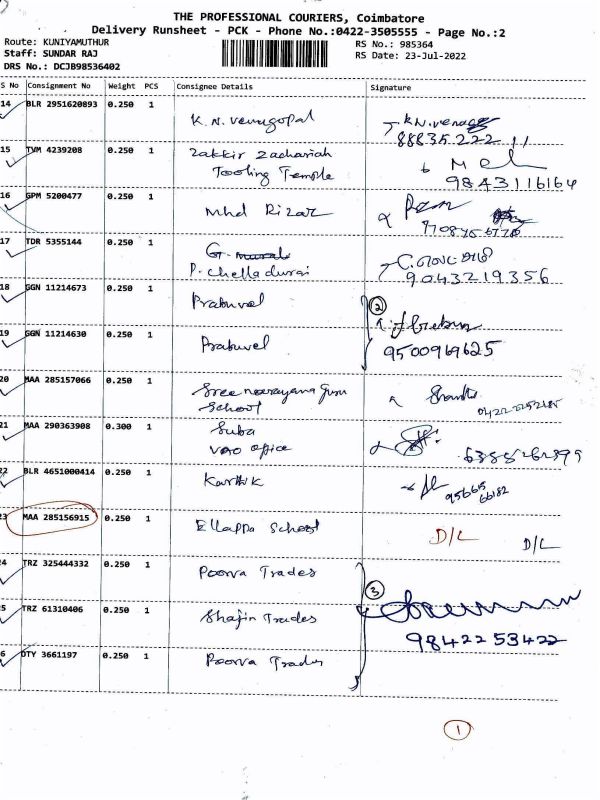 THE PROFESSIONAL COURIERS, Coimbatore
Delivery Runsheet - PCK - Phone No.:0422-3505555 - Page No.:2
Route: KUNIYAMUTHUR
RS No.: 985364
Staff: SUNDAR RAJ
RS Date: 23-Jul-2022
DRS No.: DCJB98536402
S No Consignment No Weight PCS Consignee Details Signature
14 BLR 2951620893 0.250 1
K.N. Venugopal
88835222 11
15 TVM 4239208 0.250 1 Zakkir Zachariah
Tooling Temple
9843116164
16 GPM 5200477 0.250 1 Mhd Rizar
17 TDR 5355144 0.250 1
P. Chelladurai 9043219356
18 GGN 11214673 0.250 1 Prabuvel
2
19 GGN 11214630 0.250 1 Prabuvel 9500969625
20 MAA 285157066 0.250 1 Sree narayana Guru
School
21 MAA 290363908 0.300 1 Suba
VAO office
22 BLR 4651000414 0.250 1 Karthik
23 MAA 285156915 0.250 1 Ellappa School D/L D/L
24 TRZ 325444332 0.250 1 Poorva Trades
3
25 TRZ 61310406 0.250 1 Shajin Trades
98422 53422
26 DTY 3661197 0.250 1 Poorva Trades
1